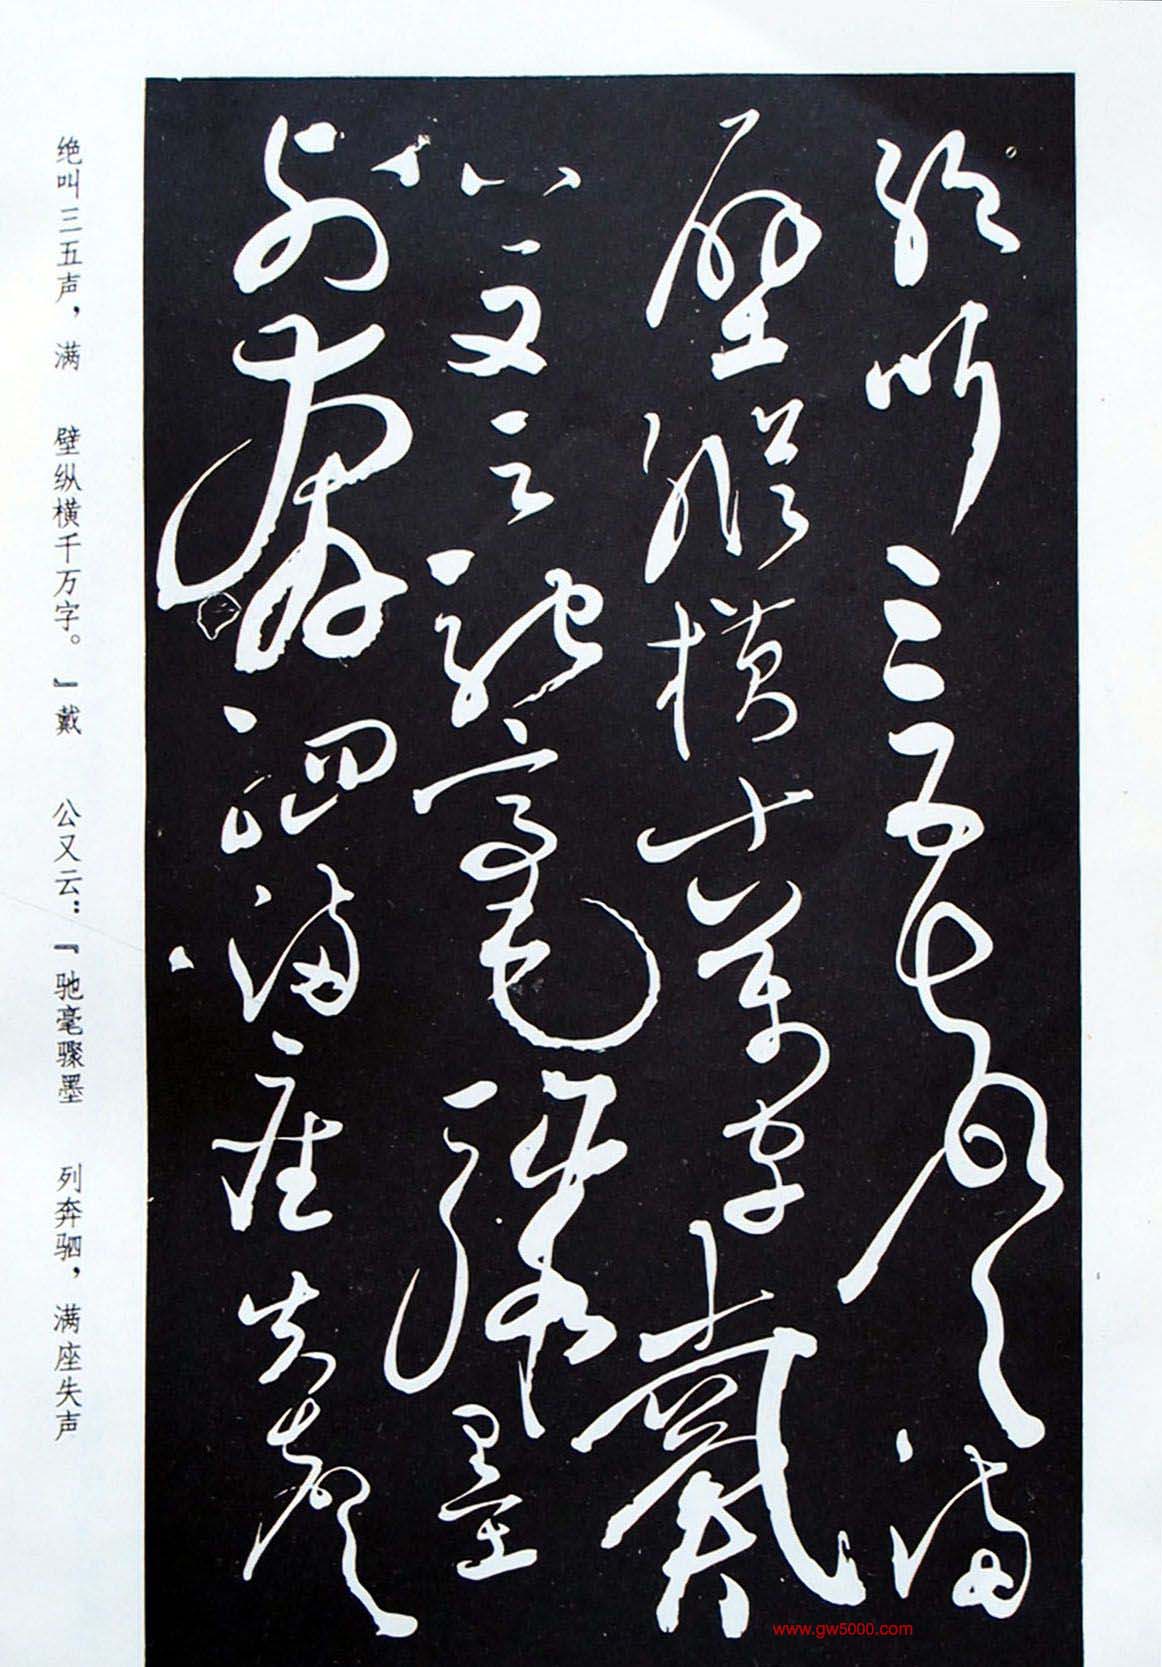 絶叫三五聲滿
壁縱橫千萬字戴
公又云馳毫驟墨
列奔駟滿座失聲
绝叫三五声，满　壁纵横千万字。』戴　公又云：『驰毫骤墨　列奔驷，满座失声
www.gw5000.com